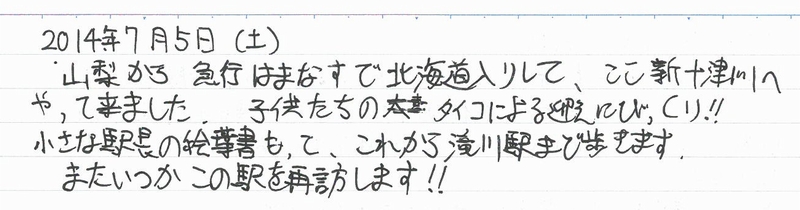 2014年7月5日（土）
山梨から 急行はまなすで北海道入りして、ここ新十津川へ
やって来ました. 子供たちの タイコによる迎えにびっくり!!
小さな駅長の絵葉書もって、これから滝川駅まで歩きます.
またいつかこの駅を再訪します!!